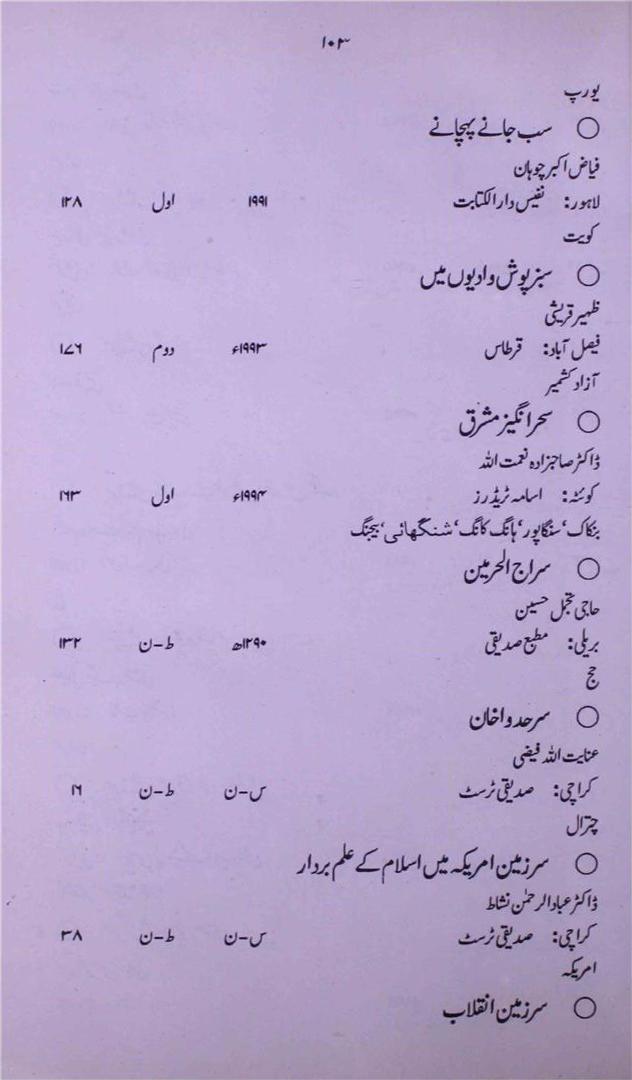 ۱۰۳
یورپ
○ سب جانے پہچانے
فیاض اکبر چوہان
لاہور: نفیس دارالکتابت ۱۹۹۱ اول ۱۲۸
کویت
○ سبز پوش وادیوں میں
ظہیر قریشی
فیصل آباد: قرطاس ۱۹۹۳ء دوم ۱۷۶
آزاد کشمیر
○ سحر انگیز مشرق
ڈاکٹر صاحبزادہ نعمت اللہ
کوئٹہ: اسامہ ٹریڈرز ۱۹۹۴ء اول ۱۶۳
بنکاک‘ سنگاپور‘ ہانگ کانگ‘ شنگھائی‘ بیجنگ
○ سراج الحرمین
حاجی تجمل حسین
بریلی: مطبع صدیقی ۱۲۹۰ھ ط-ن ۱۳۲
حج
○ سرحد واخان
عنایت اللہ فیضی
کراچی: صدیقی ٹرسٹ س-ن ط-ن ۱۶
چترال
○ سرزمین امریکہ میں اسلام کے علم بردار
ڈاکٹر عباد الرحمٰن نشاط
کراچی: صدیقی ٹرسٹ س-ن ط-ن ۳۸
امریکہ
○ سرزمین انقلاب